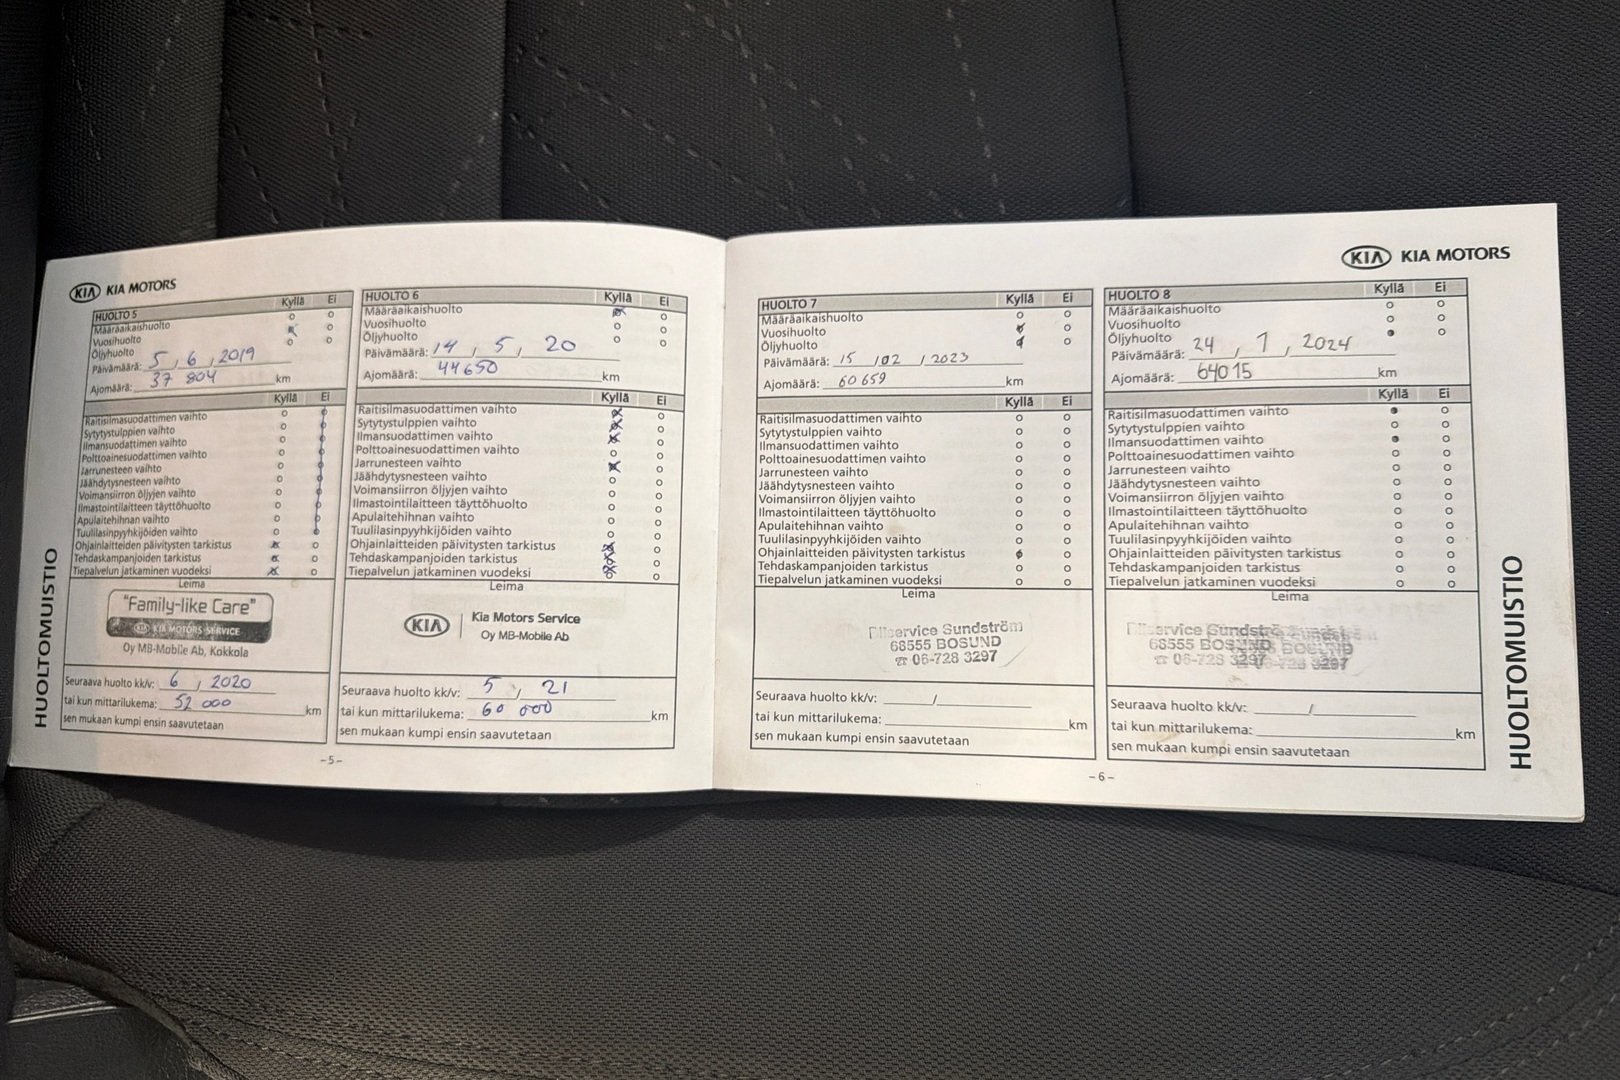 KIA KIA MOTORS
HUOLTO 5 Kyllä Ei
Määräaikaishuolto
Vuosihuolto
Öljyhuolto
Päivämäärä: 5, 6, 2019
Ajomäärä: 37 804 km
Kyllä Ei
Raitisilmasuodattimen vaihto
Sytytystulppien vaihto
Ilmansuodattimen vaihto
Polttoainesuodattimen vaihto
Jarrunesteen vaihto
Jäähdytysnesteen vaihto
Voimansiirron öljyjen vaihto
Ilmastointilaitteen täyttöhuolto
Apulaitehihnan vaihto
Tuulilasinpyyhkijöiden vaihto
Ohjainlaitteiden päivitysten tarkistus
Tehdaskampanjoiden tarkistus
Tiepalvelun jatkaminen vuodeksi
Leima
"Family-like Care"
KIA KIA MOTORS SERVICE
Oy MB-Mobile Ab, Kokkola
Seuraava huolto kk/v: 6, 2020
tai kun mittarilukema: 52 000 km
sen mukaan kumpi ensin saavutetaan
HUOLTO 6 Kyllä Ei
Määräaikaishuolto
Vuosihuolto
Öljyhuolto
Päivämäärä: 14, 5, 20
Ajomäärä: 44650 km
Kyllä Ei
Raitisilmasuodattimen vaihto
Sytytystulppien vaihto
Ilmansuodattimen vaihto
Polttoainesuodattimen vaihto
Jarrunesteen vaihto
Jäähdytysnesteen vaihto
Voimansiirron öljyjen vaihto
Ilmastointilaitteen täyttöhuolto
Apulaitehihnan vaihto
Tuulilasinpyyhkijöiden vaihto
Ohjainlaitteiden päivitysten tarkistus
Tehdaskampanjoiden tarkistus
Tiepalvelun jatkaminen vuodeksi
Leima
KIA Kia Motors Service
Oy MB-Mobile Ab
Seuraava huolto kk/v: 5, 21
tai kun mittarilukema: 60 000 km
sen mukaan kumpi ensin saavutetaan
HUOLTOMUISTIO
-5-
KIA KIA MOTORS
HUOLTO 7 Kyllä Ei
Määräaikaishuolto
Vuosihuolto
Öljyhuolto
Päivämäärä: 15 /02 / 2023
Ajomäärä: 60 659 km
Kyllä Ei
Raitisilmasuodattimen vaihto
Sytytystulppien vaihto
Ilmansuodattimen vaihto
Polttoainesuodattimen vaihto
Jarrunesteen vaihto
Jäähdytysnesteen vaihto
Voimansiirron öljyjen vaihto
Ilmastointilaitteen täyttöhuolto
Apulaitehihnan vaihto
Tuulilasinpyyhkijöiden vaihto
Ohjainlaitteiden päivitysten tarkistus
Tehdaskampanjoiden tarkistus
Tiepalvelun jatkaminen vuodeksi
Leima
Sundström
68555 BOSUND
☎ 06-728 3297
Seuraava huolto kk/v: /
tai kun mittarilukema: km
sen mukaan kumpi ensin saavutetaan
HUOLTO 8 Kyllä Ei
Määräaikaishuolto
Vuosihuolto
Öljyhuolto
Päivämäärä: 24, 1, 2024
Ajomäärä: 64015 km
Kyllä Ei
Raitisilmasuodattimen vaihto
Sytytystulppien vaihto
Ilmansuodattimen vaihto
Polttoainesuodattimen vaihto
Jarrunesteen vaihto
Jäähdytysnesteen vaihto
Voimansiirron öljyjen vaihto
Ilmastointilaitteen täyttöhuolto
Apulaitehihnan vaihto
Tuulilasinpyyhkijöiden vaihto
Ohjainlaitteiden päivitysten tarkistus
Tehdaskampanjoiden tarkistus
Tiepalvelun jatkaminen vuodeksi
Leima
68555 BOSUND
☎ 06-728 3297
Seuraava huolto kk/v: /
tai kun mittarilukema: km
sen mukaan kumpi ensin saavutetaan
HUOLTOMUISTIO
-6-